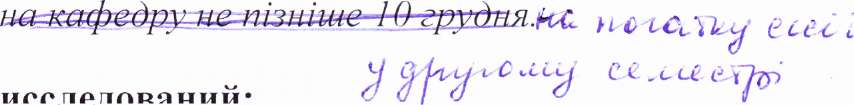 на кафедру не пізніше 10 грудня. на початку сесії
у другому семестрі
исследований: